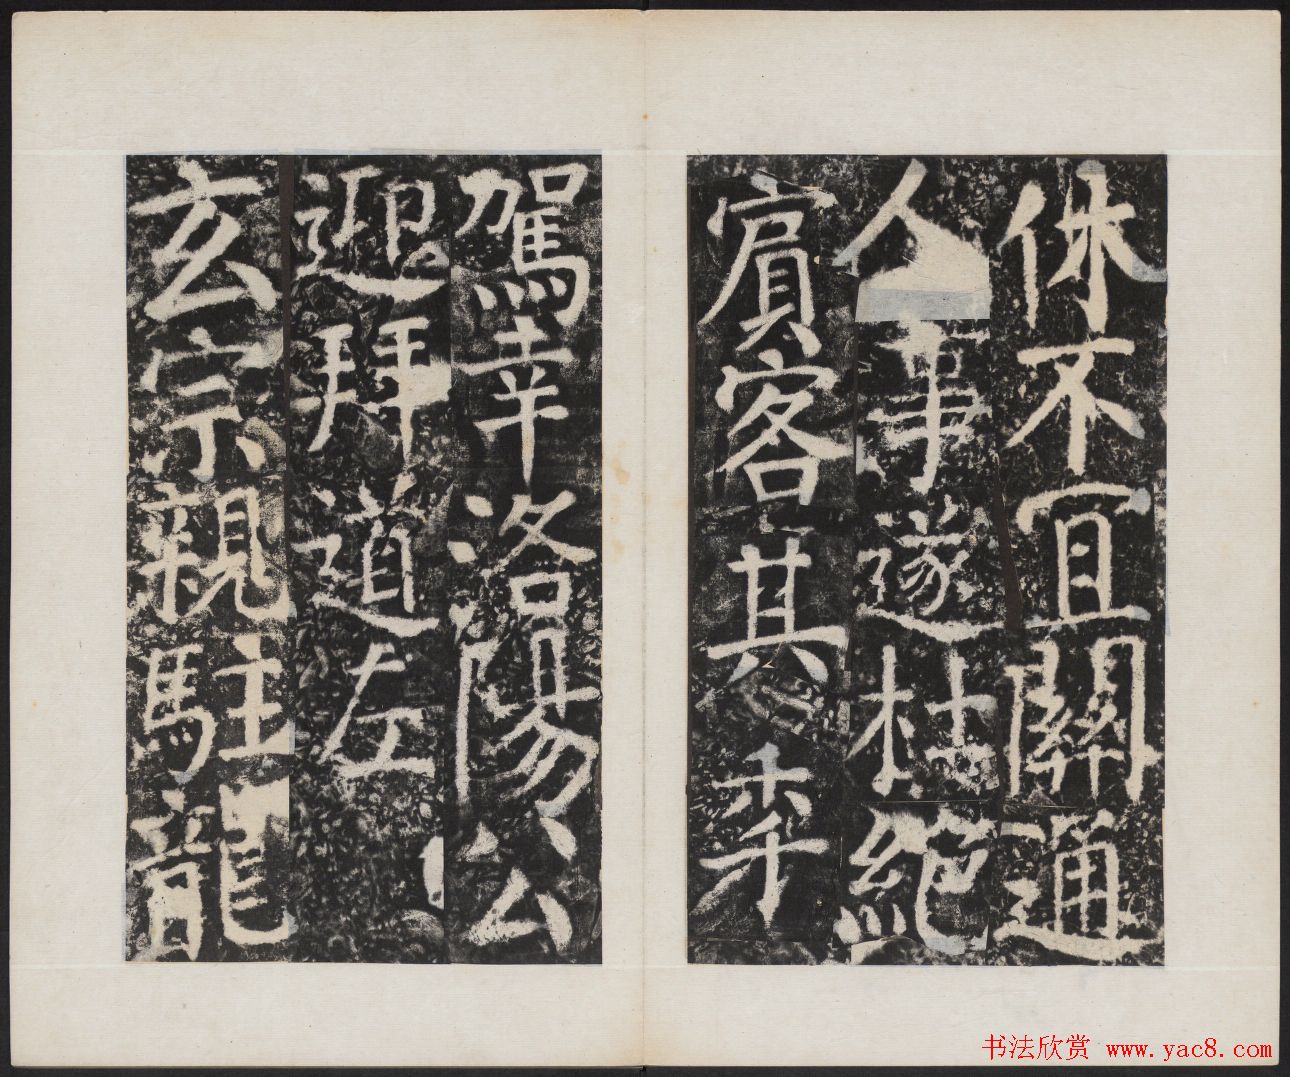 休不宜關通
人事遂杜絕
賓客其秊
駕幸洛陽公
迎拜道左
玄宗親駐龍
书法欣赏 www.yac8.com